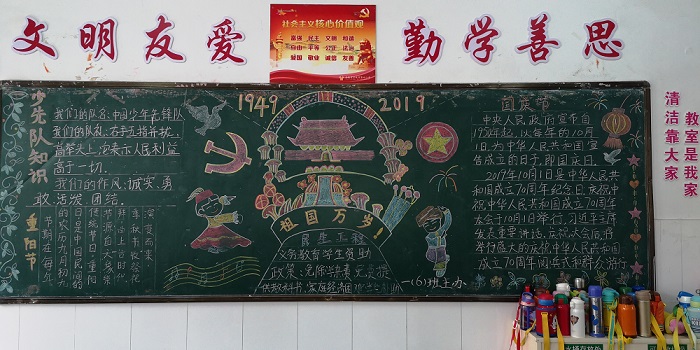 文明友爱
社会主义核心价值观
富强 民主 文明 和谐
自由 平等 公正 法治
爱国 敬业 诚信 友善
勤学善思
少先队知识
我们的队名:中国少年先锋队
我们的队礼:右手五指并拢,
高举头上,它表示人民利益
高于一切。
我们的作风:诚实、勇
敢、活泼、团结。
重阳节
节期在每年
的农历九月初九
日是中国民间的
传统节日。重阳
1949
2019
祖国万岁!
民生工程
义务教育学生资助
政策:免除学杂费、免费提
国庆节
中央人民政府宣布自
1950年起,以每年的10月
1日,为中华人民共和国宣
告成立的日子,即国庆日。
2019年10月1日是中华人民共
和国成立70周年纪念日,庆祝中
华人民共和国成立70周年
大会于10月1日举行,习近平主席
发表重要讲话,庆祝大会后将
举行盛大的庆祝中华人民共和国
成立70周年阅兵式和群众游行
一(6)班主办
教室是我家
清洁靠大家